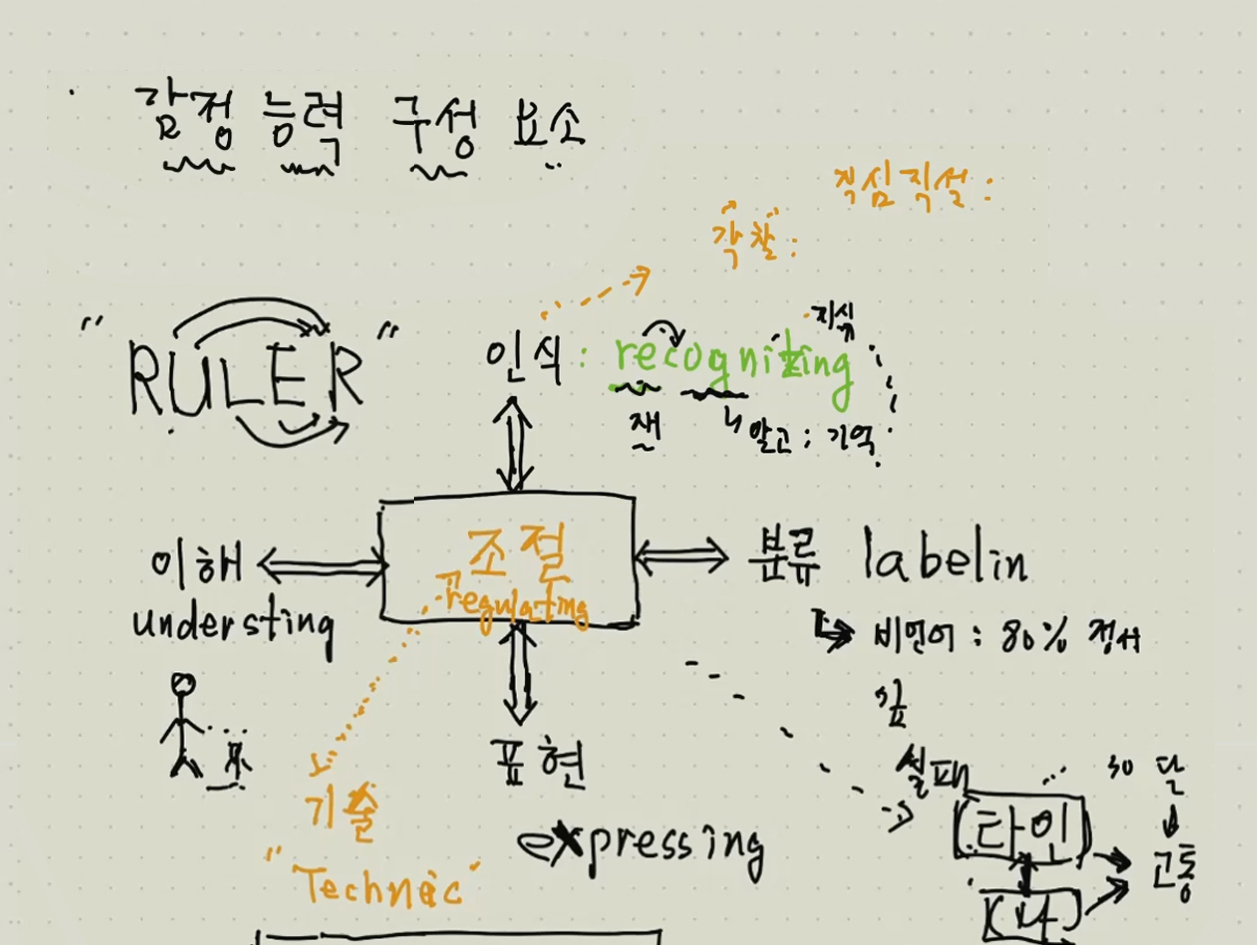 감정 능력 구성 요소
직심직설 :
각찰 :
"RULER"
인식 : recognizing
지식
잰
알고 : 기억
조절
regulating
이해
understing
분류 labelin
비언어 : 80% 정서
표현
expressing
기술
"Technic"
실패
30 달
(타인)
고통
(나)